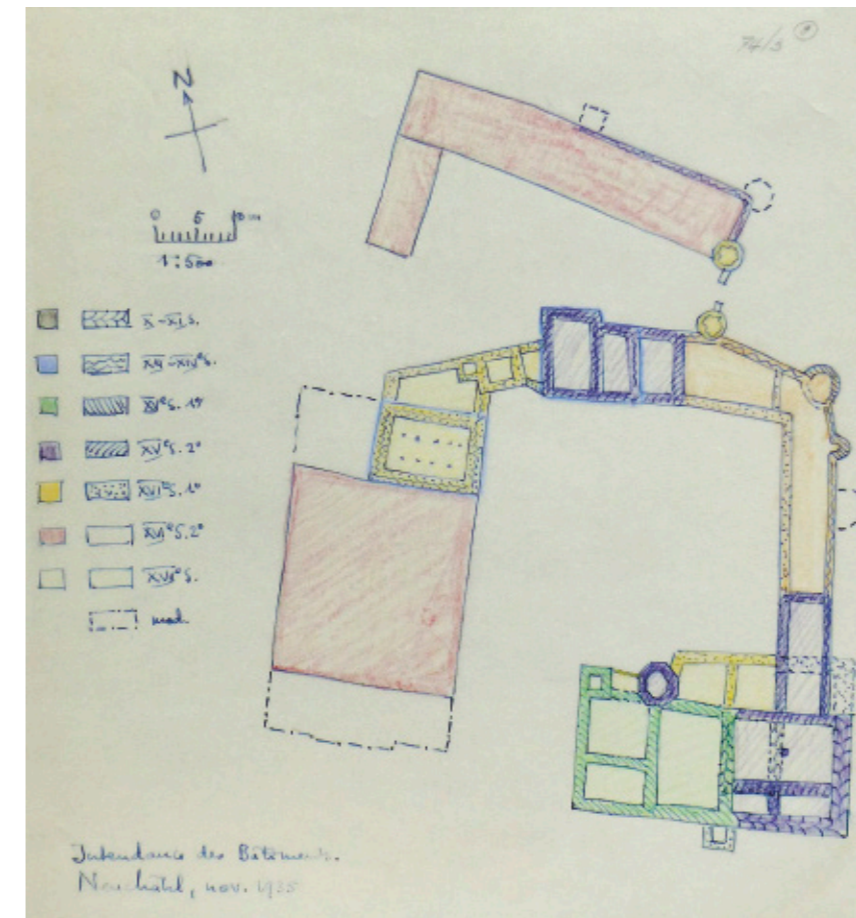 74/3
N
0 5 10 m
1:500
X-XI s.
XVe s. 1°
XVe s. 2°
XVIe s. 1°
XVIe s. 2°
mod.
Intendance des Bâtiments.
Neuchâtel, nov. 1935